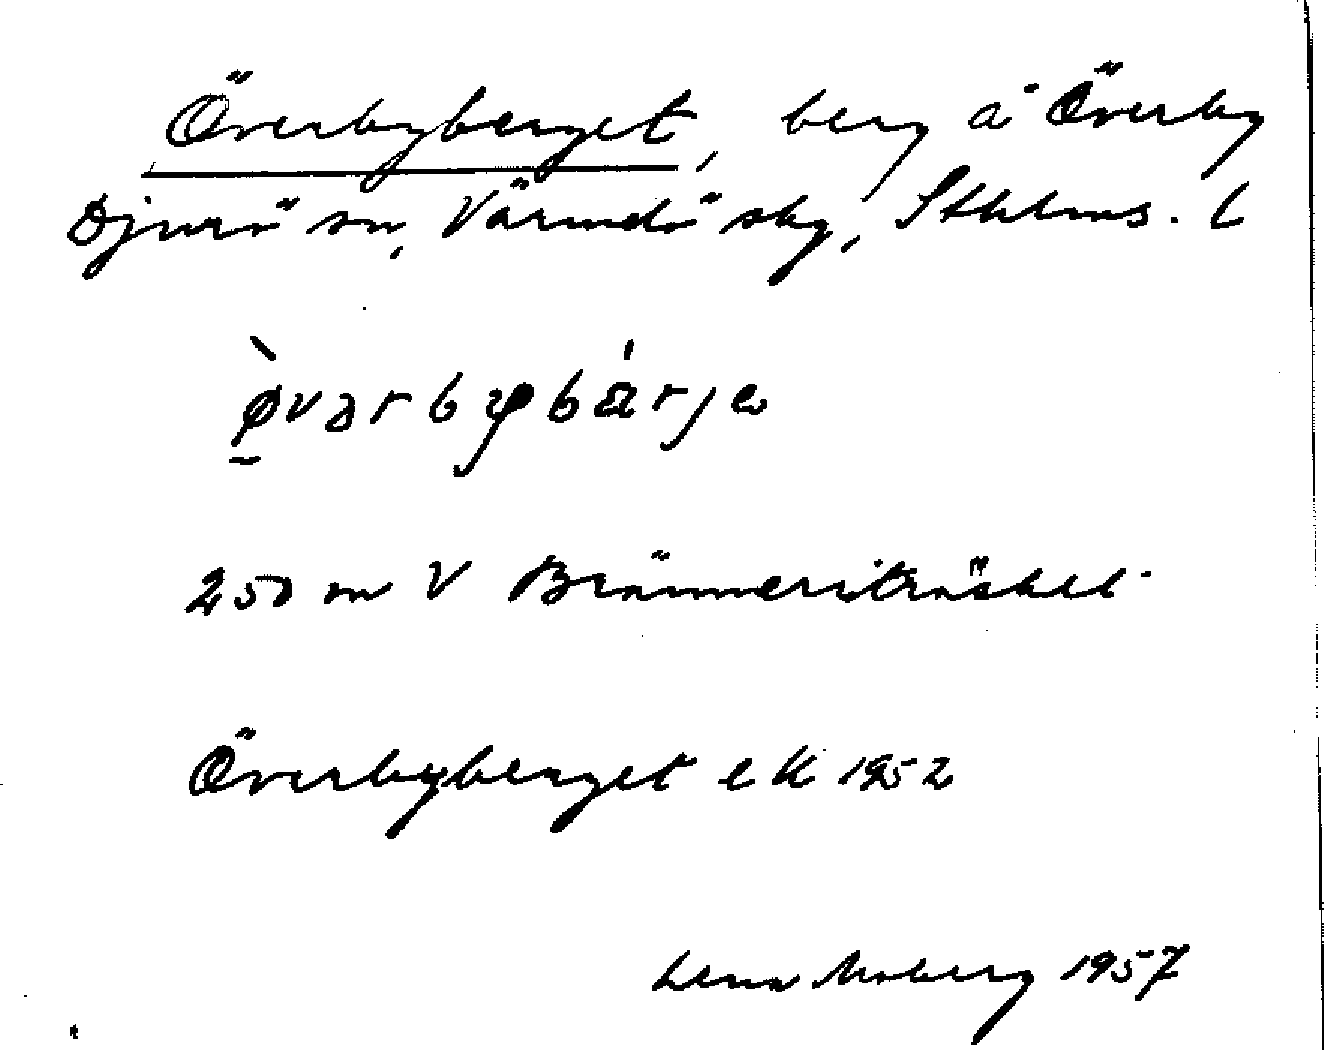 Överbyberget, berg å Överby
Djurö sn, Värmdö skg, Sthlms. l
250 m V Bränneriträsket
Överbyberget ek 1952
Lena Moberg 1957